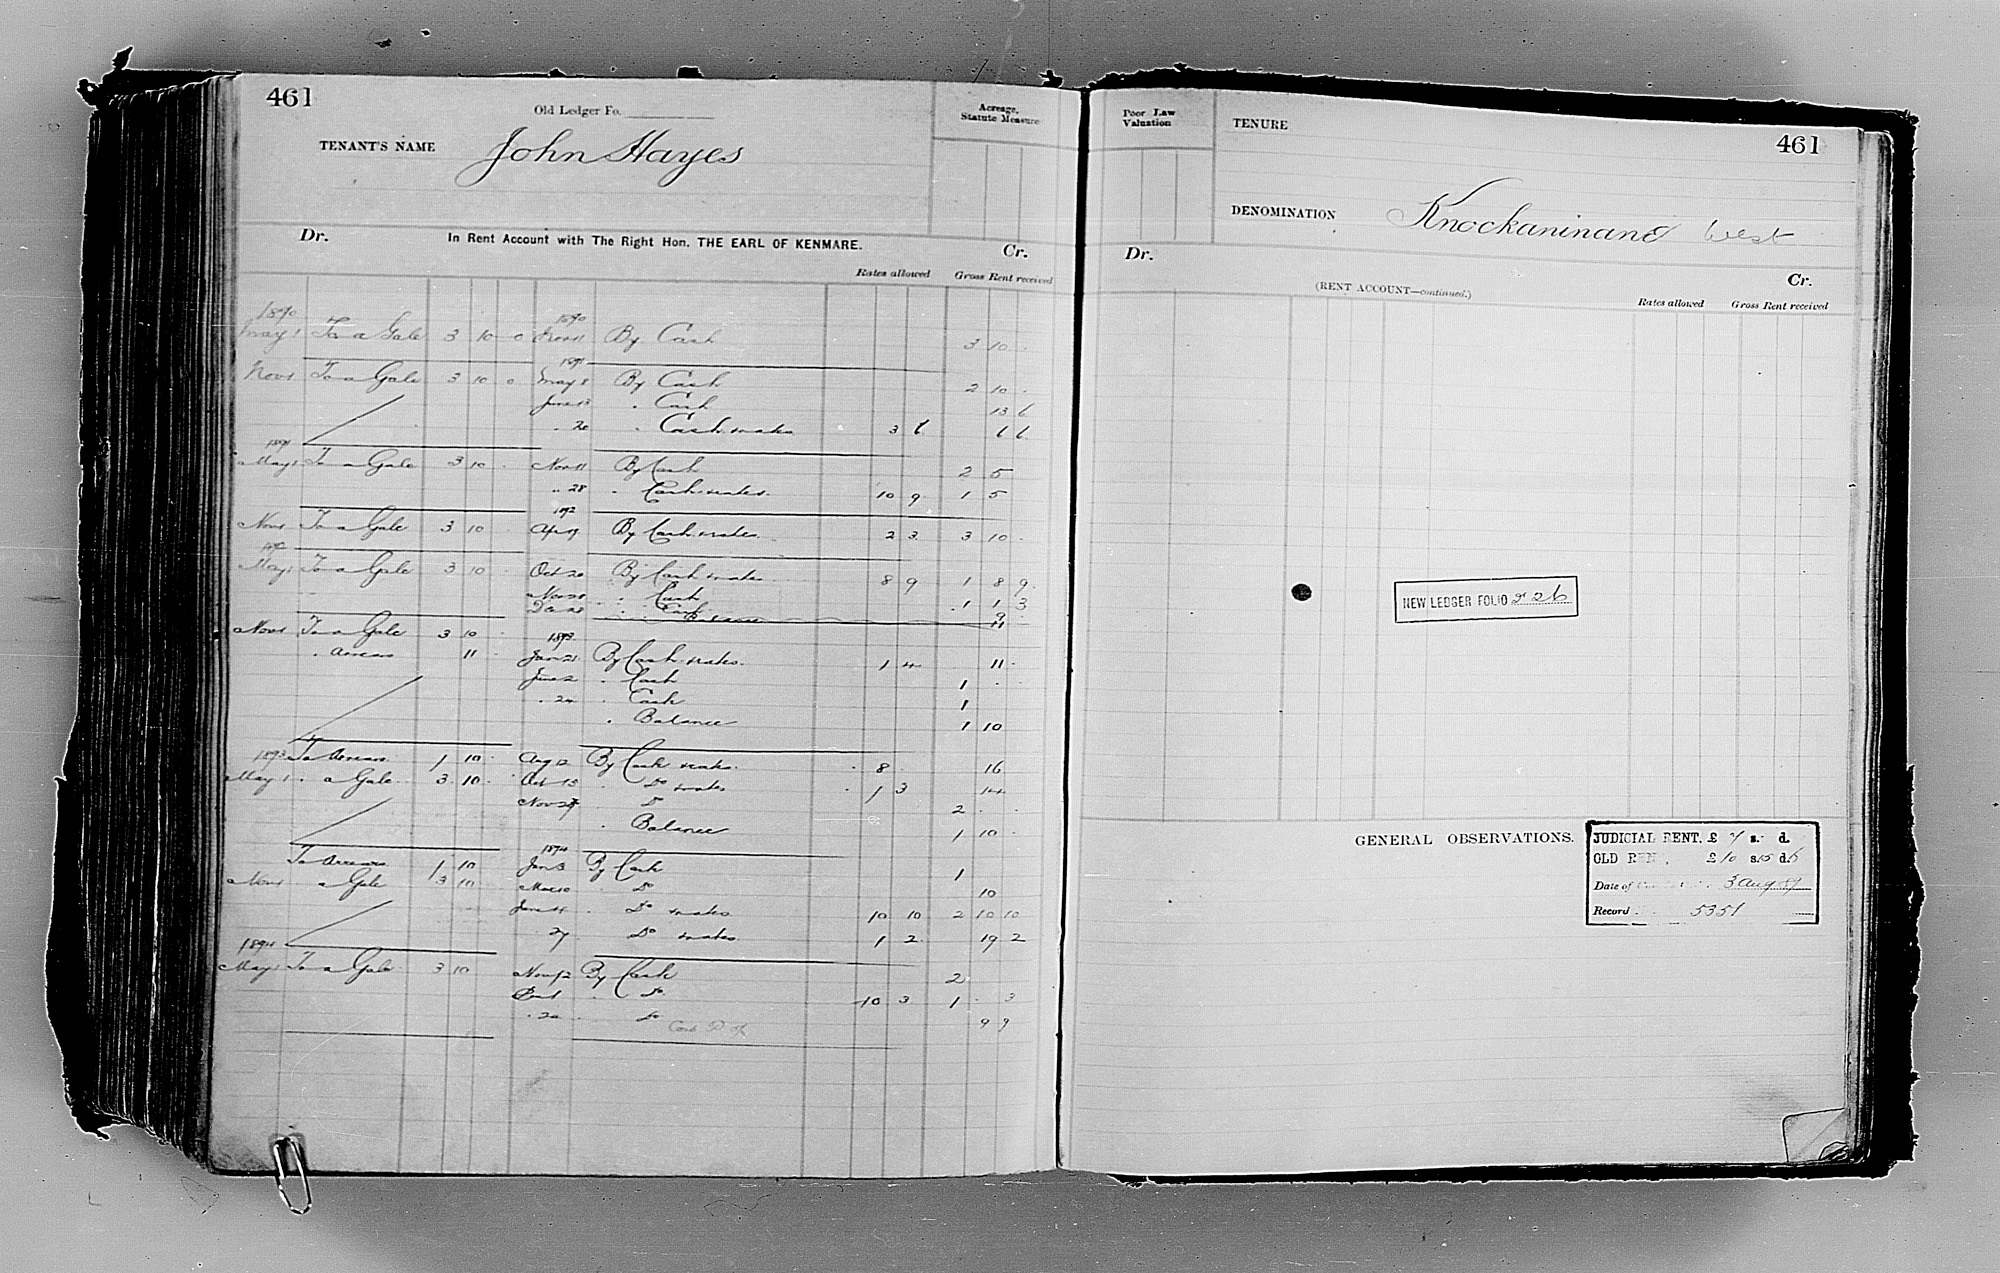 461
Old Ledger Fo.
TENANT'S NAME John Hayes
Acreage, Statute Measure
Dr. In Rent Account with The Right Hon. THE EARL OF KENMARE. Cr.
Rates allowed Gross Rent received
1890 1890
May 1 To a Gale 3 10 0 Nov 11 By Cash 3 10 .
1891
Nov 1 To a Gale 3 10 0 May 8 By Cash 2 10 .
June 13 . Cash 13 6
. 20 . Cash & rates 3 6 6 6
1891
May 1 To a Gale 3 10 . Nov 11 By Cash 2 5
.. 28 . Cash & rates 10 9 1 5
1892
Nov 1 To a Gale 3 10 . Apr By Cash & rates 2 3 3 10 .
1892
May 1 To a Gale 3 10 . Oct 20 By Cash & rates 8 9 1 8 9
Nov 28 . Cash 1 1 3
Dec 28 . Cash 9
Balance 11
Nov 1 To a Gale 3 10 . 1893
. Arrears 11 Jan 21 By Cash & rates 1 4 11 .
June 2 . Cash 1 . .
. 24 . Cash 1
. Balance 1 10
1893 To Arrears 1 10 . Aug 12 By Cash & rates . 8 . 16
May 1 . a Gale 3 10 . Oct 13 . Do & rates . 1 3 14
Nov 27 Do 2 . .
. Balance 1 10 .
1894
To Arrears 1 10 Jan 3 By Cash 1
Nov 1 a Gale 3 10 Mar 10 . Do 10
June 11 . Do & rates 10 10 2 10 10
27 . Do & rates 1 2 19 2
1894
May 1 To a Gale 3 10 Nov 12 By Cash 2
Dec 1 . Do 10 3 1 . 3
. 24 . Do 9 9
Poor Law Valuation
TENURE
461
DENOMINATION Knockaninane West
Dr. Cr.
(RENT ACCOUNT—continued.)
Rates allowed Gross Rent received
NEW LEDGER FOLIO 226
GENERAL OBSERVATIONS.
JUDICIAL RENT. £ 7 s. d.
OLD REN , £10 s.15 d.6
Date of 3 Aug 89
Record 5351